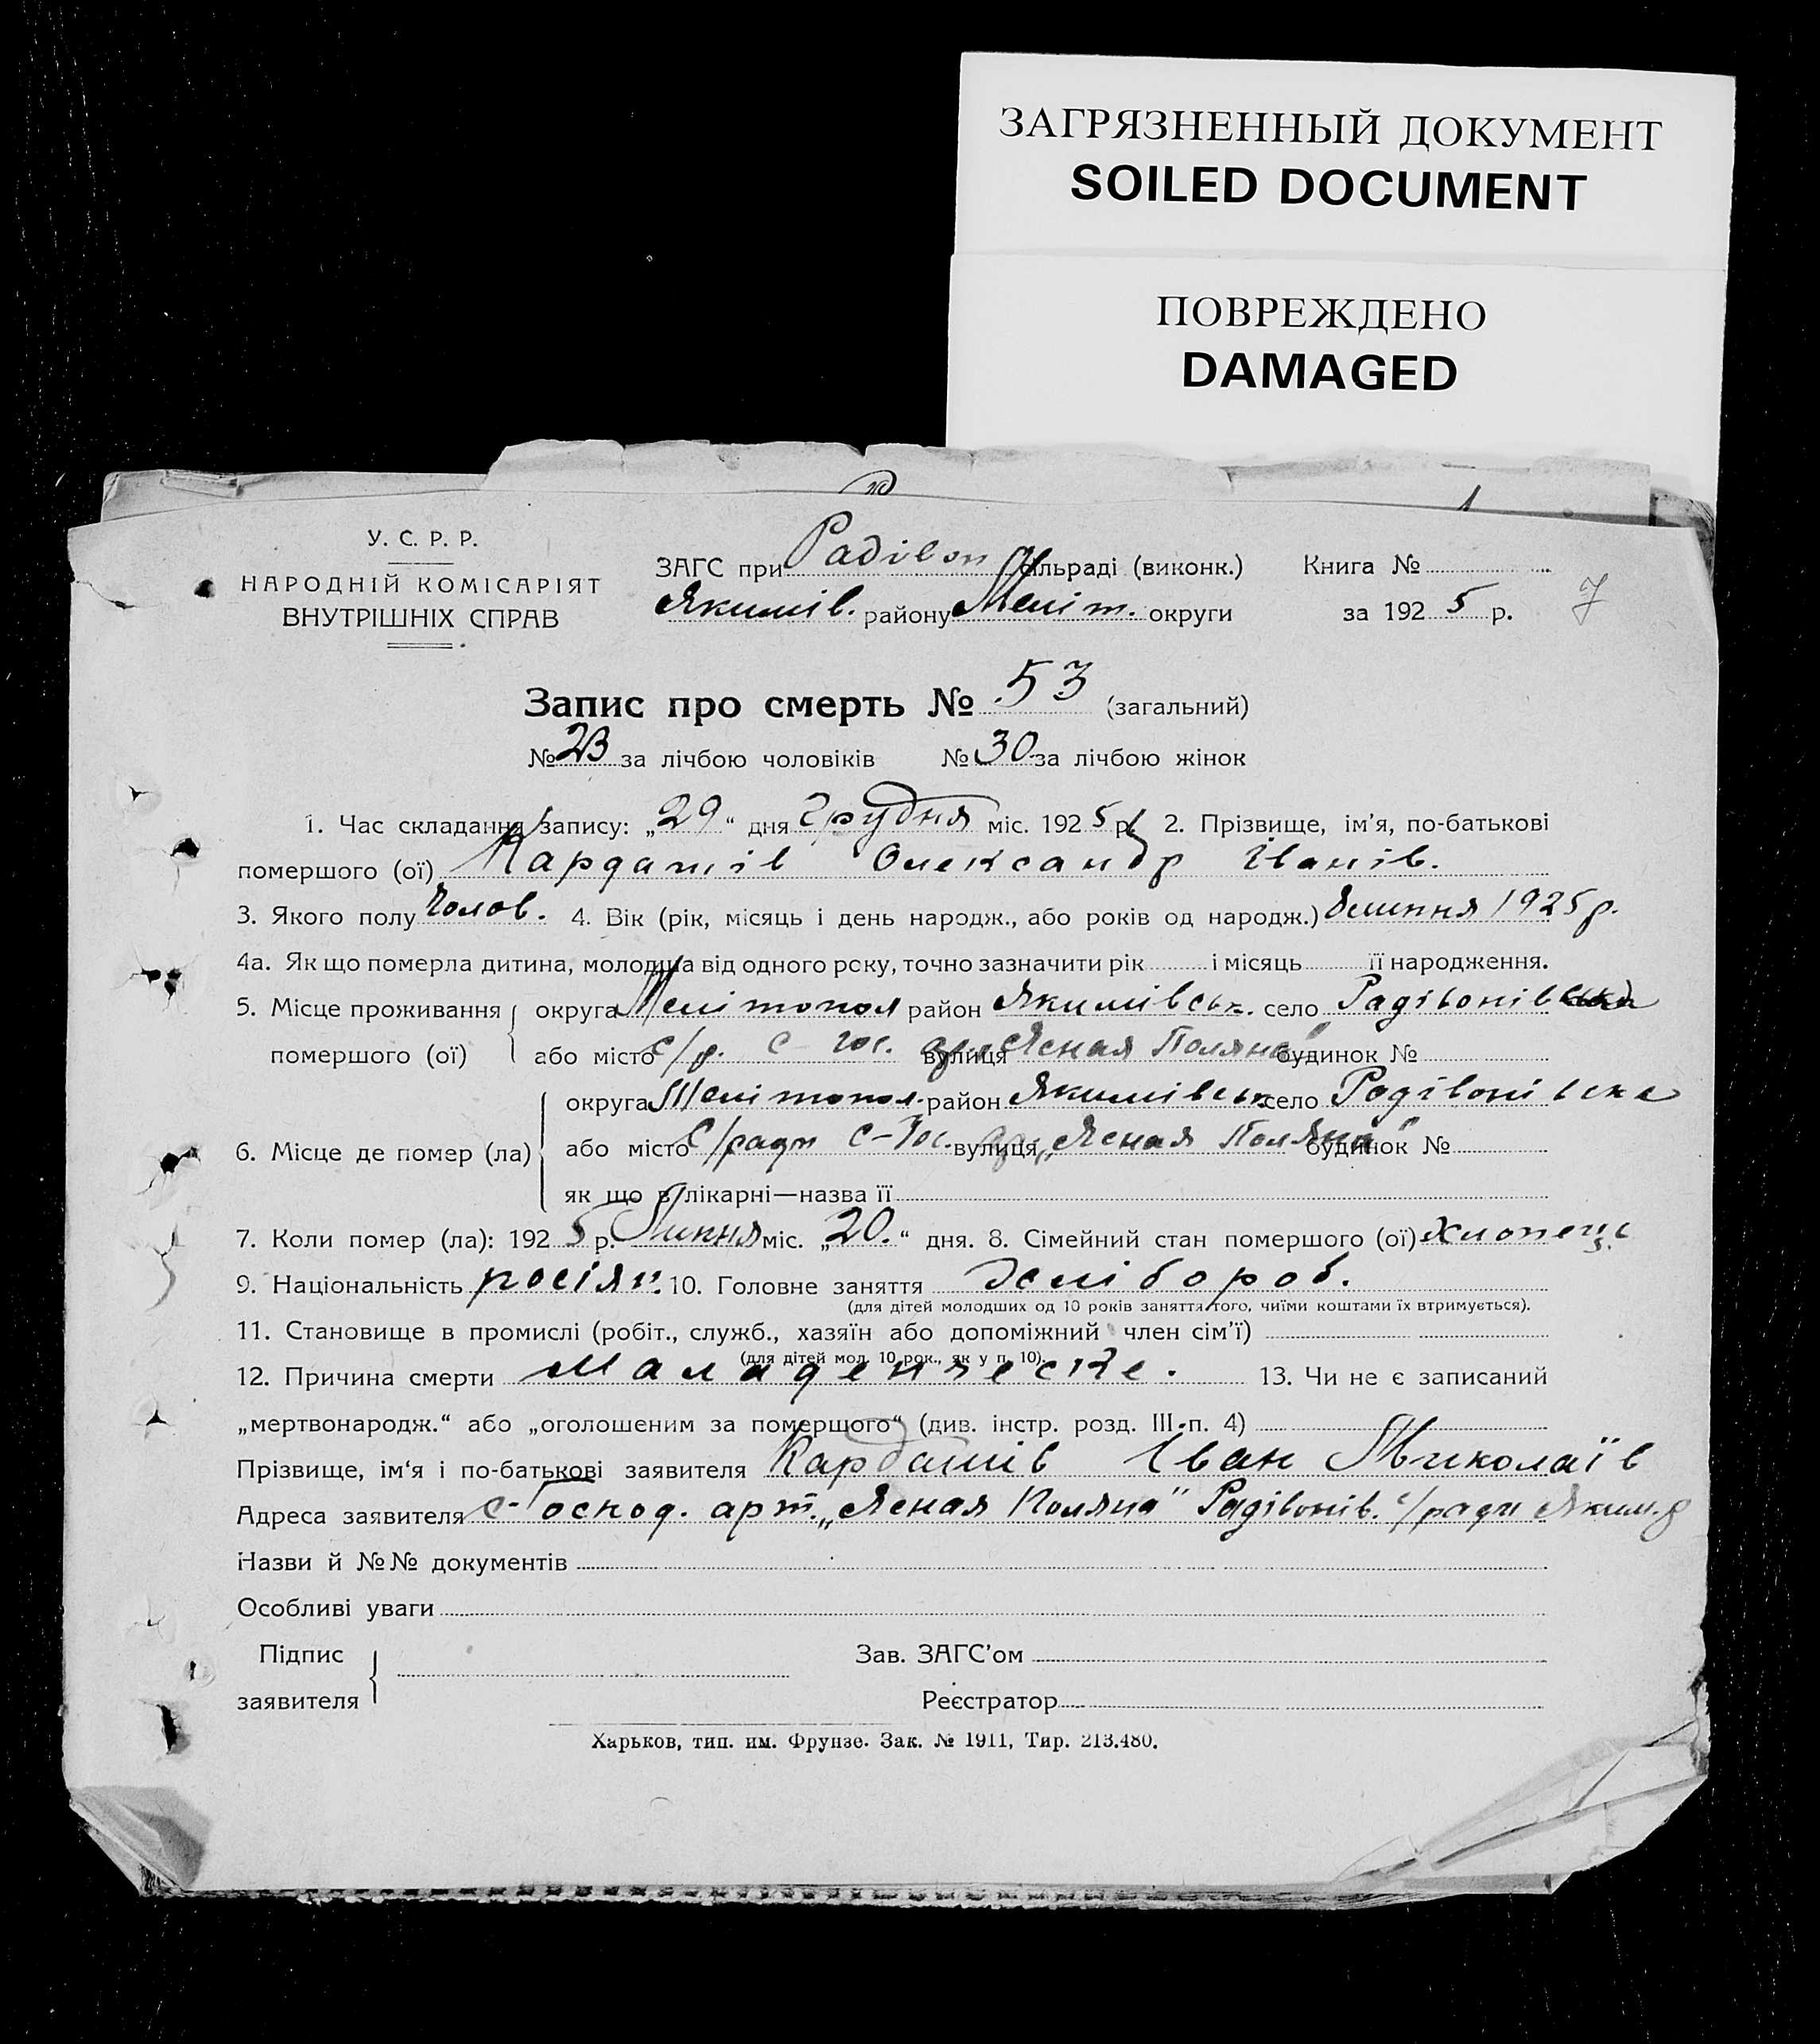 ЗАГРЯЗНЕННЫЙ ДОКУМЕНТ
SOILED DOCUMENT
ПОВРЕЖДЕНО
DAMAGED
У. С. Р. Р.
НАРОДНІЙ КОМІСАРІЯТ
ВНУТРІШНІХ СПРАВ
ЗАГС при Радівон сільраді (виконк.)
Якимів. району Меліт. округи
Книга №
за 1925 р.
7
Запис про смерть № 53 (загальний)
№ 23 за лічбою чоловіків № 30 за лічбою жінок
1. Час складання запису: „29“ дня Грудня міс. 1925 р. 2. Прізвище, ім’я, по-батькові
помершого (ої) Кардашів Олександр Іванів.
3. Якого полу Чолов. 4. Вік (рік, місяць і день народж., або років од народж.) 8 липня 1925 р.
4а. Як що померла дитина, молодша від одного року, точно зазначити рік і місяць її народження.
5. Місце проживання помершого (ої) округа Мелітопол район Якимівськ. село Радівонівська
або місто с/р. с-гос. вулиця „Ясная Поляна“ будинок №
6. Місце де помер (ла) округа Мелітопол. район Якимівськ село Радівонівска
або місто с/ради с-гос. вулиця „Ясная Поляна“ будинок №
як що в лікарні—назва її
7. Коли помер (ла): 1925 р. Липня міс. „20.“ дня. 8. Сімейний стан помершого (ої) хлопець
9. Національність росіян. 10. Головне заняття Хлібороб.
(для дітей молодших од 10 років заняття того, чиїми коштами їх втримується).
11. Становище в промислі (робіт., служб., хазяїн або допоміжний член сім’ї)
(для дітей мол. 10 рок., як у п. 10).
12. Причина смерти Маладенческе. 13. Чи не є записаний
„мертвонародж.“ або „оголошеним за помершого“ (див. інстр. розд. III п. 4)
Прізвище, ім‘я і по-батькові заявителя Кардашів Іван Миколаїв
Адреса заявителя с-Господ. арт. „Ясная Поляна“ Радівонів. с/ради Яким. р
Назви й №№ документів
Особливі уваги
Підпис заявителя
Зав. ЗАГС’ом
Реєстратор
Харьков, тип. им. Фрунзе. Зак. № 1911, Тир. 213.480.